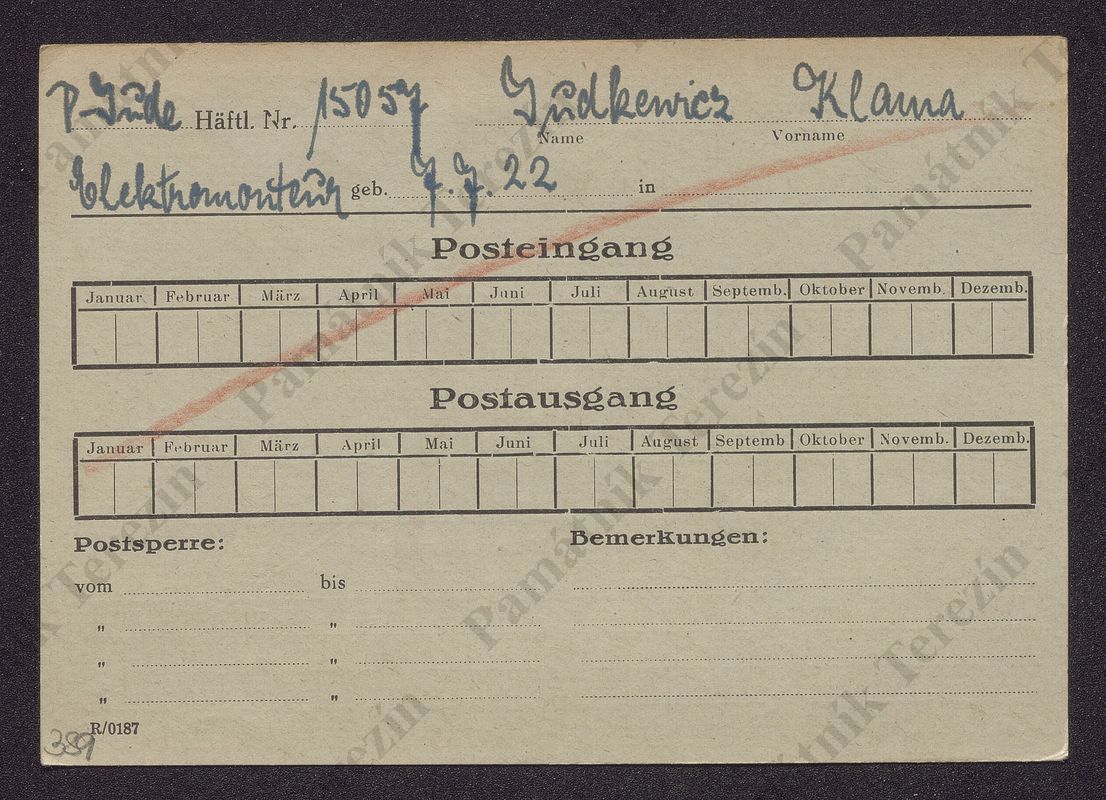 P-Jude Häftl. Nr. 15057 Judkewicz Klama
Name Vorname
Elektromonteur geb. 7.7.22 in
Posteingang
Januar Februar März April Mai Juni Juli August Septemb. Oktober Novemb. Dezemb.
Postausgang
Januar Februar März April Mai Juni Juli August Septemb Oktober Novemb. Dezemb.
Postsperre: Bemerkungen:
vom bis
„ „
„ „
„ „
R/0187
389
Památník Terezín